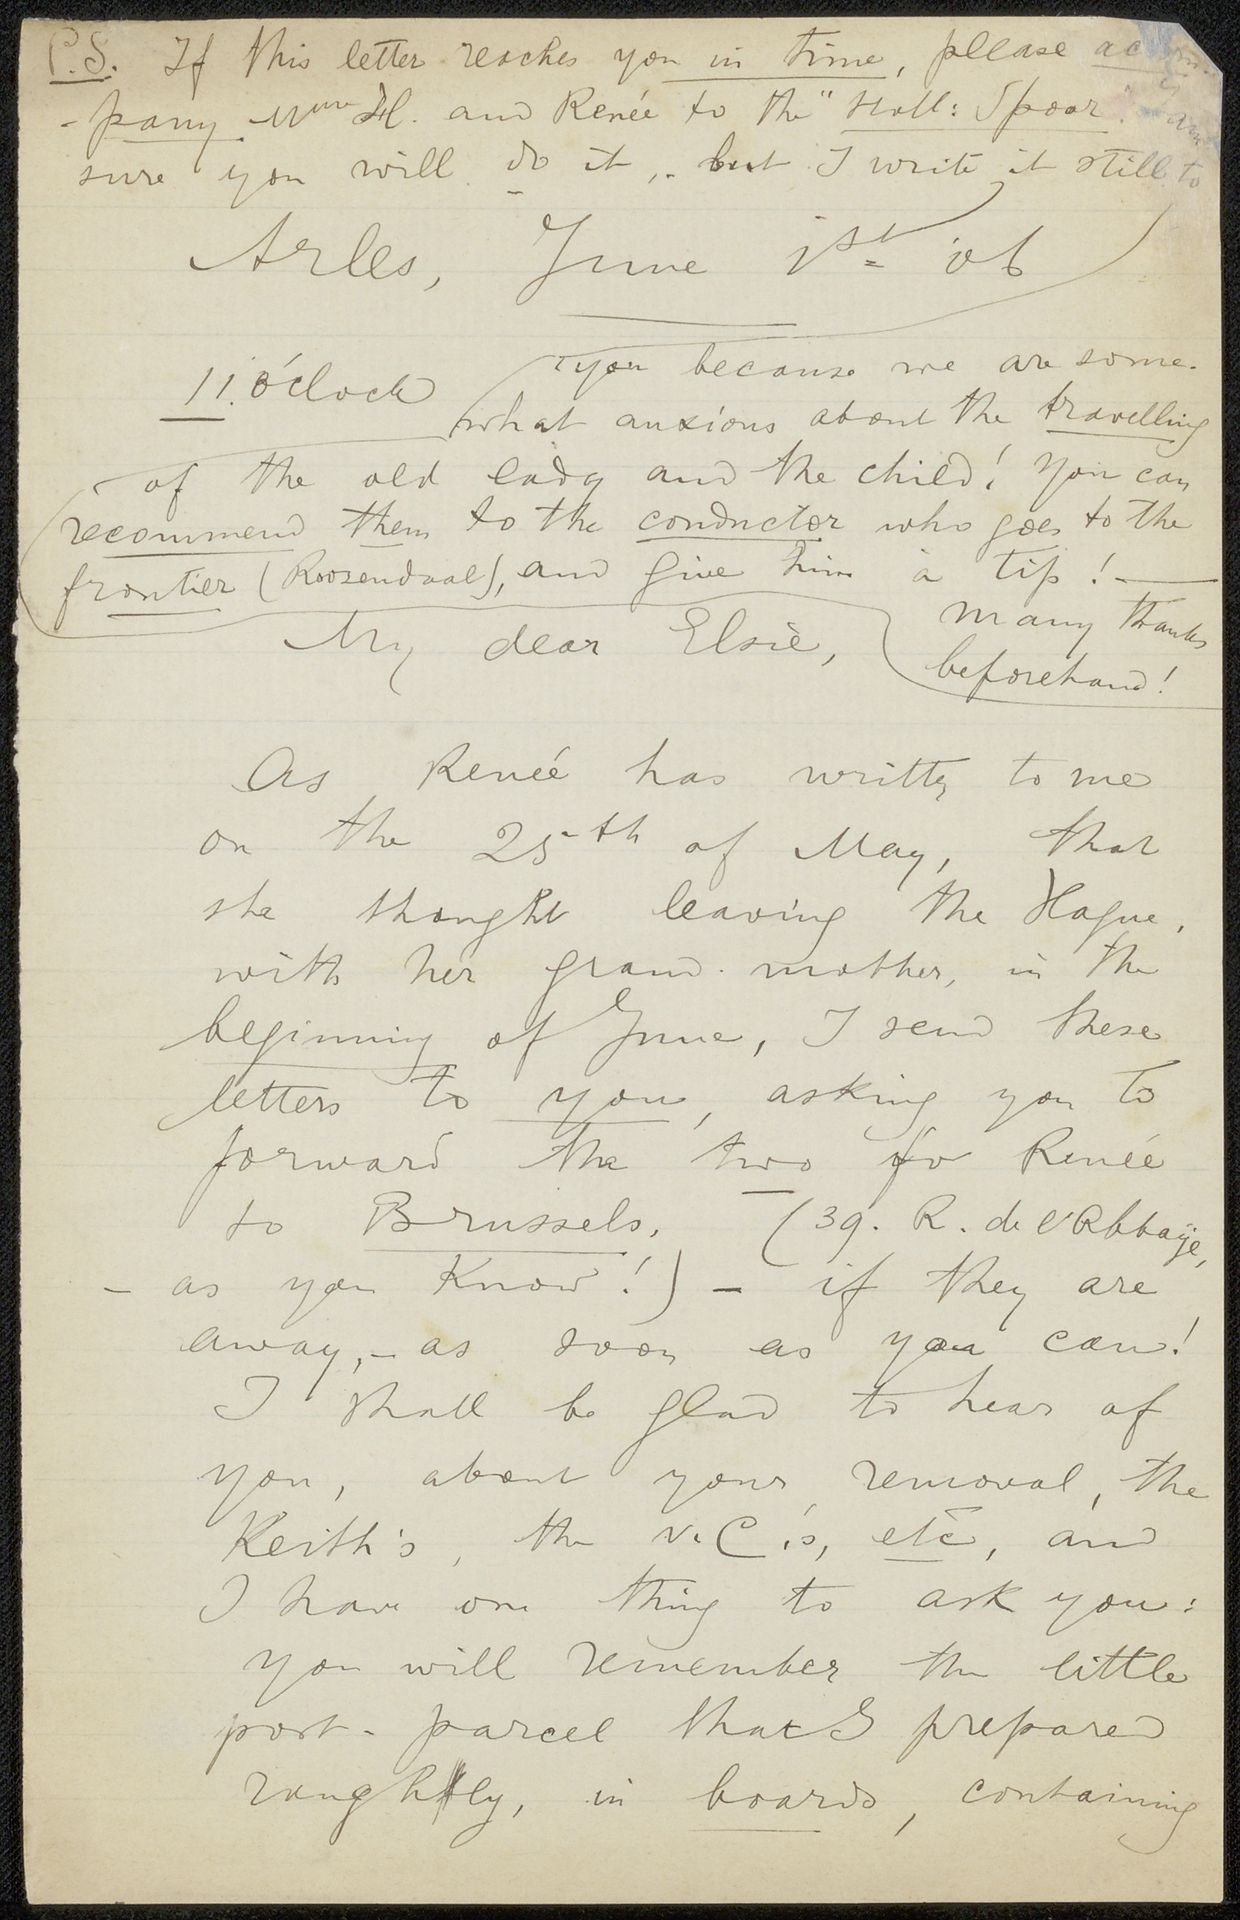 P.S. If this letter reaches you in time, please accom-
-pany Mme H. and Renée to the "Holl: Spoor
sure you will do it, - but I write it still to
Arles, June 1st = '06
11. o'clock
you because we are some-
what anxious about the travelling
of the old lady and the child! You can
recommend them to the conductor who goes to the
frontier (Roosendaal), and give him a tip! —
many thanks
beforehand!
My dear Elsie,
As Renée has written to me
on the 25th of May, that
she thought leaving the Hague,
with her grand-mother, in the
beginning of June, I send these
letters to you, asking you to
forward the two for Renée
to Brussels. (39. R. de l'Abbaÿe,
- as you know!) - if they are
away, - as soon as you can!
I shall be glad to hear of
you, about your removal, the
Keith's, the v. C.'s, etc, and
I have one thing to ask you:
you will remember the little
post-parcel that I prepared
roughly, in boards, containing